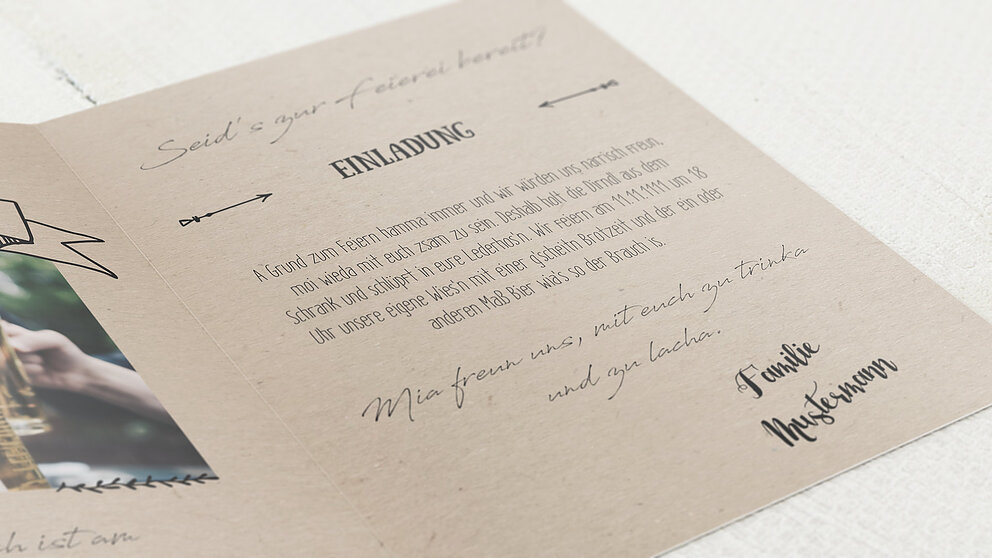 Seid's zur Feierei bereit?
EINLADUNG
A Grund zum Feiern hamma immer und wir würden uns narrisch freun,
moi wieda mit euch zsam zu sein. Deshalb holt die Dirndl aus dem
Schrank und schlüpft in eure Lederhos'n. Wir feiern am 11.11.1111 um 18
Uhr unsere eigene Wies'n mit einer g'scheitn Brotzeit und der ein oder
anderen Maß Bier wia's so der Brauch is.
Mia freun uns, mit euch zu trinka
und zu lacha.
Familie
Mustermann
ch ist am